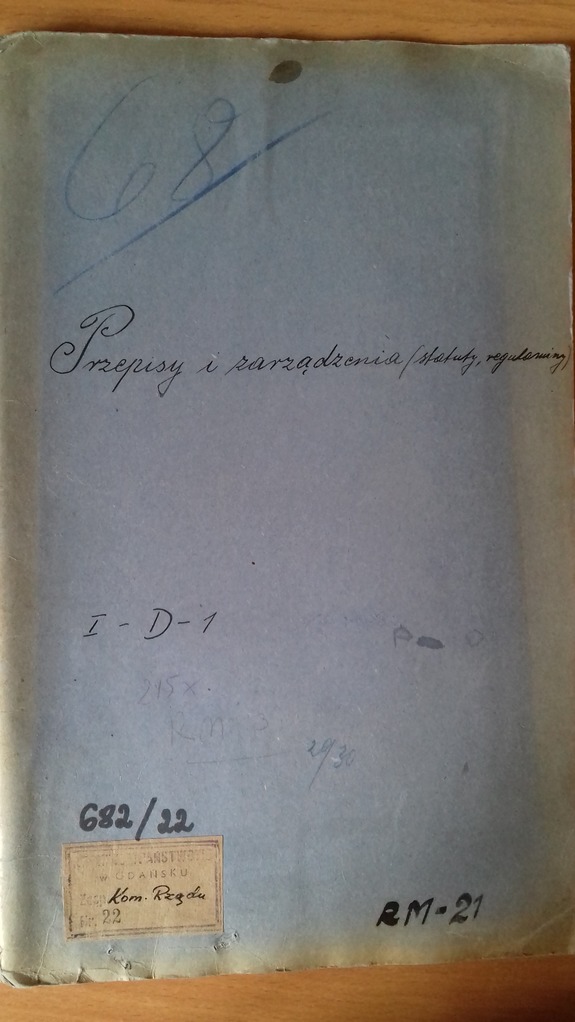 68
Przepisy i zarządzenia (statuty, regulaminy)
I - D - 1
215x
RM
29/30
682/22
w GDAŃSKU
Kom. Rządu
Nr. 22
RM-21